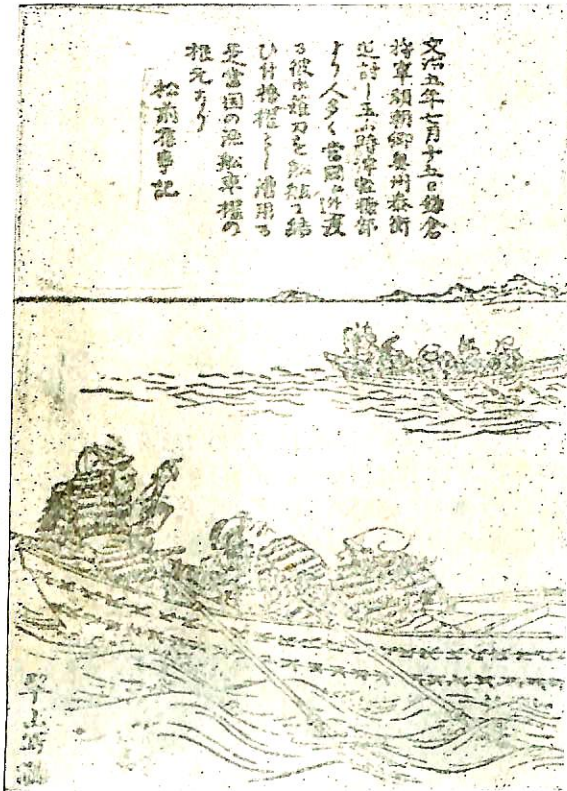 文治五年七月十五日鎌倉
将軍頼朝卿奥州泰衡
追討し玉ふ時津軽糠部
より人多く當國に逃渡
る彼等薙刀を船舷に結
ひ付櫓櫂とし漕用る
是當国の漁船車櫂の
根元なり
松前舊事記